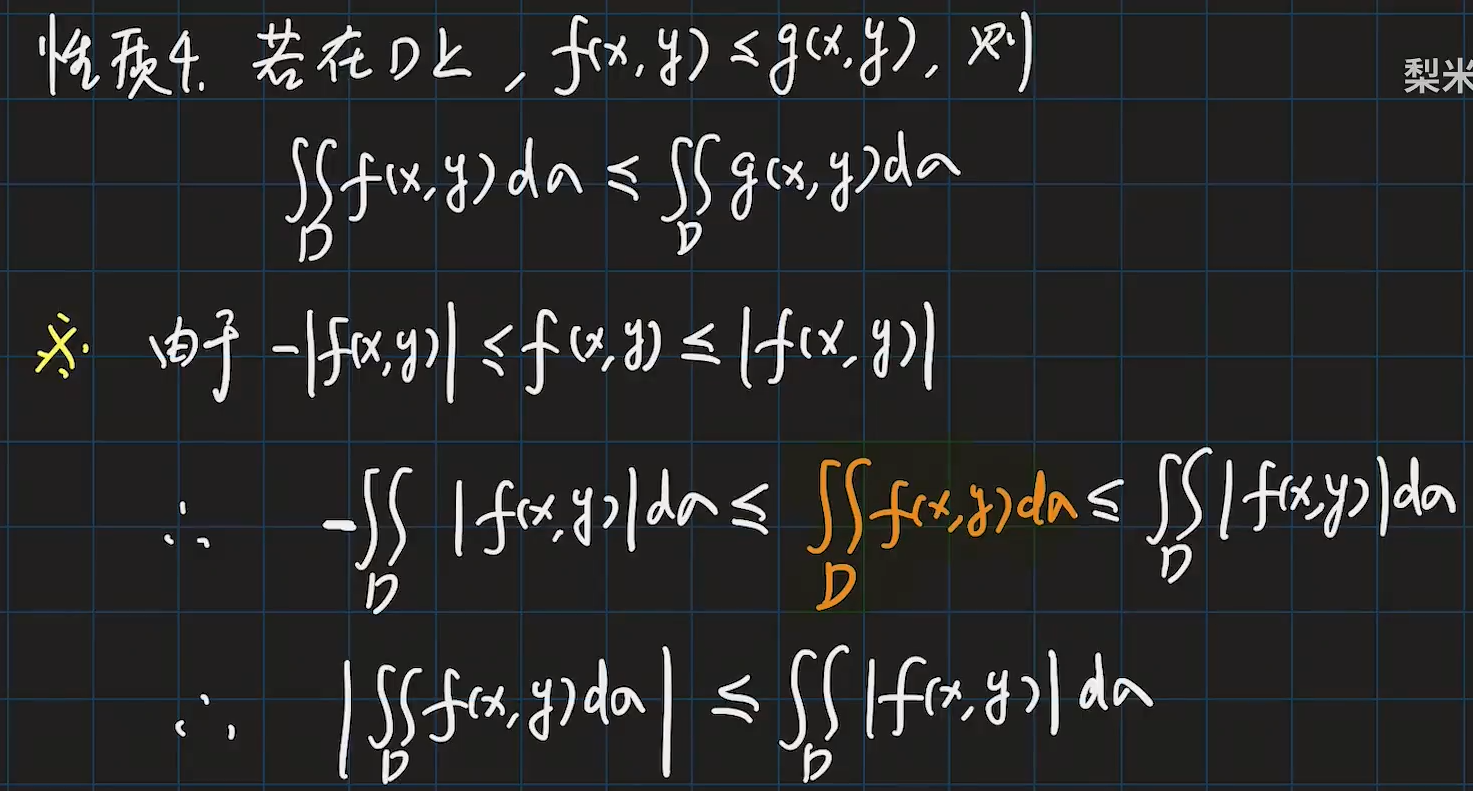 性质4. 若在D上, f(x,y)≤g(x,y), 则
梨米
∬_D f(x,y)dσ ≤ ∬_D g(x,y)dσ
※. 由于 -|f(x,y)| ≤ f(x,y) ≤ |f(x,y)|
∴ -∬_D |f(x,y)|dσ ≤ ∬_D f(x,y)dσ ≤ ∬_D |f(x,y)|dσ
∴ |∬_D f(x,y)dσ| ≤ ∬_D |f(x,y)|dσ